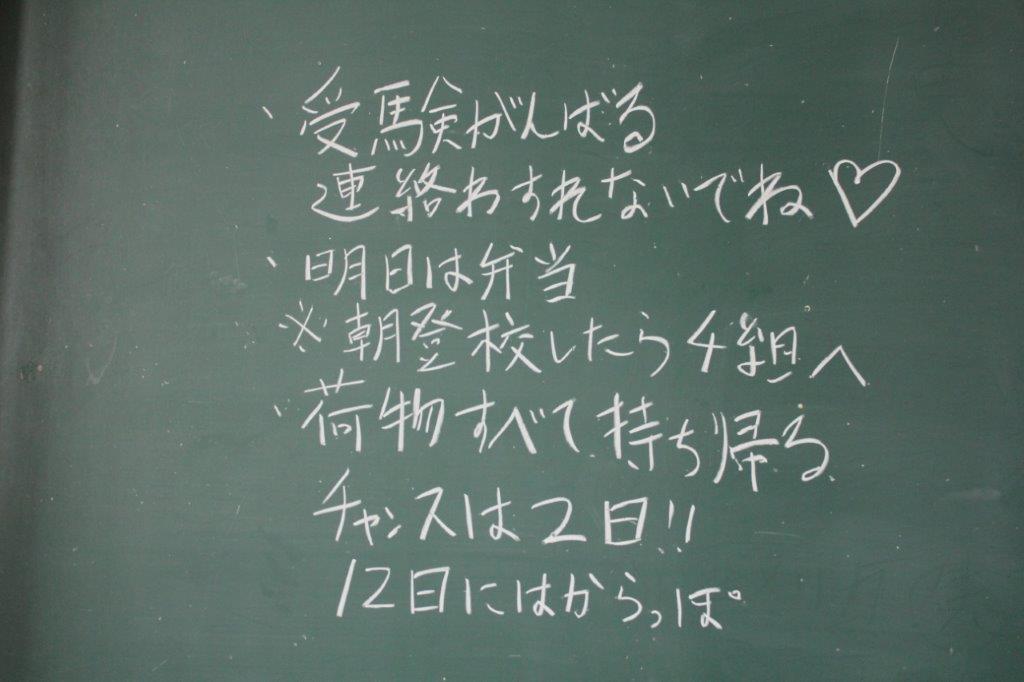 、受験がんばる
連絡わすれないでね♡
、明日は弁当
※朝登校したら4組へ
、荷物すべて持ち帰る
チャンスは2日!!
12日にはからっぽ